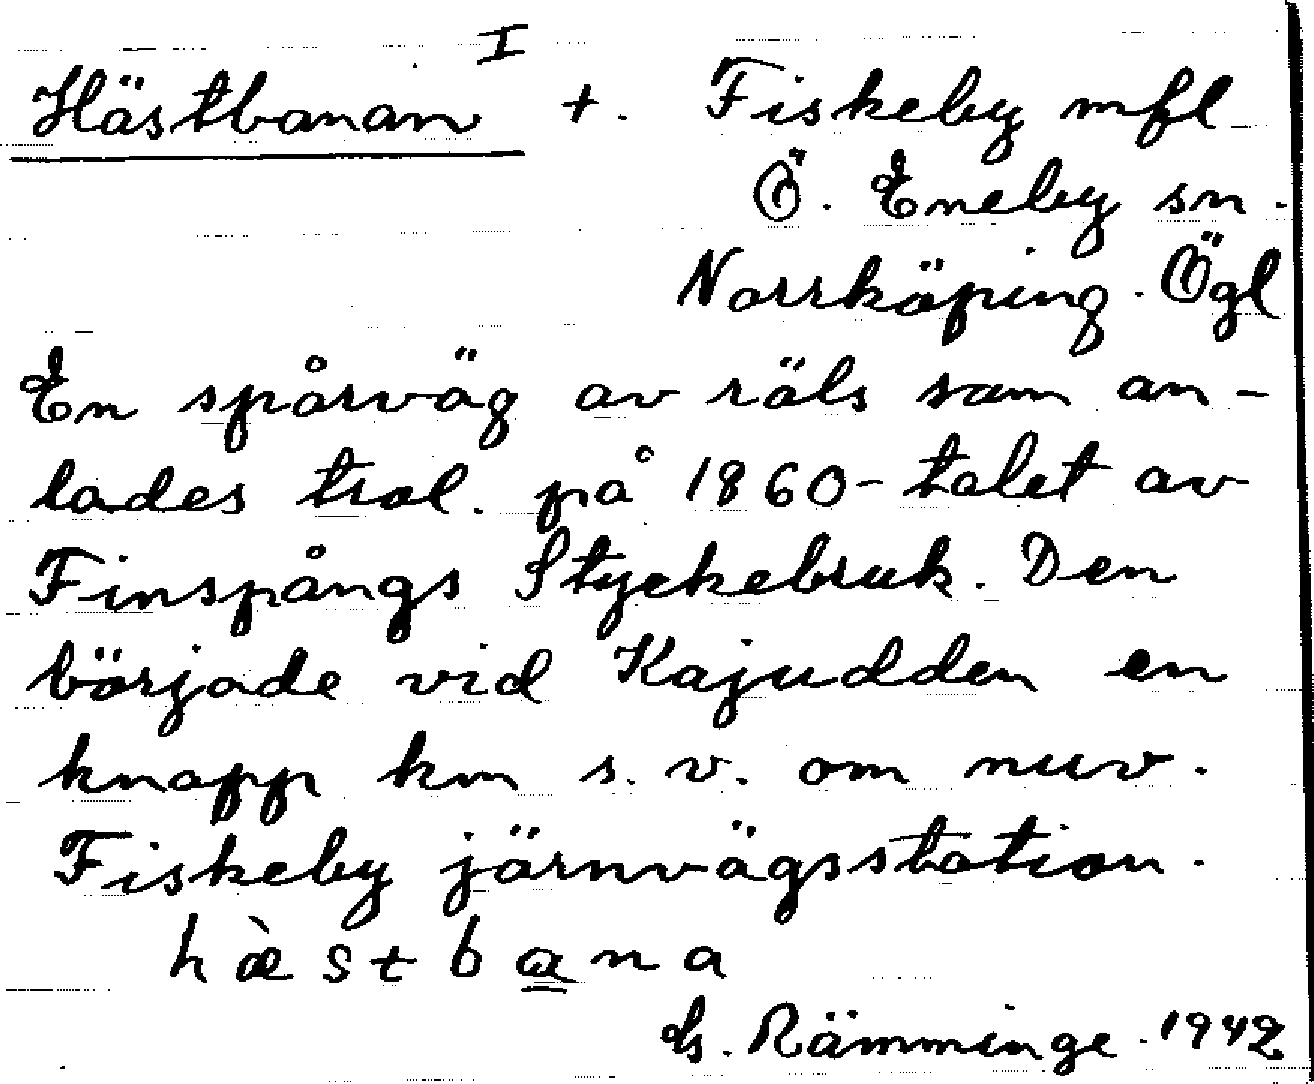 I
Hästbanan +. Fiskeby mfl
Ö. Eneby sn.
Norrköping. Ögl
En spårväg av räls som an-
lades trol. på 1860-talet av
Finspångs Styckebruk. Den
började vid Kajudden en
knapp km s.v. om nuv.
Fiskeby järnvägsstation.
hæ̀stbana
G. Rämminge. 1942